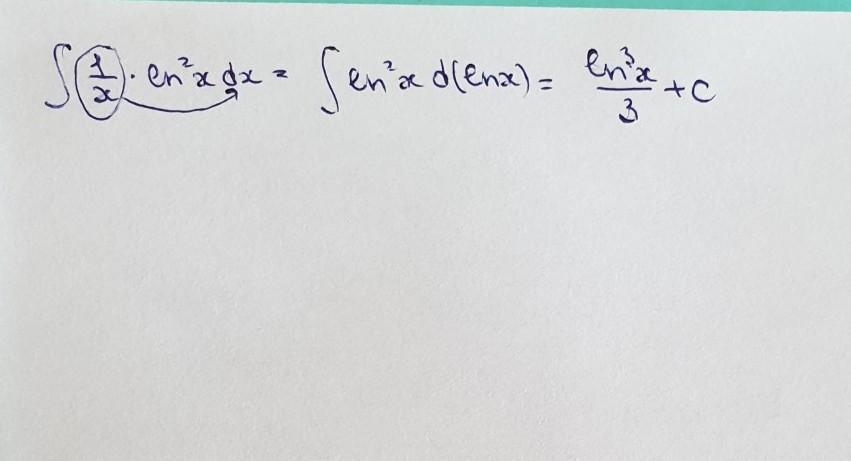 ∫ 1/x · ln²x dx = ∫ ln²x d(lnx) = ln³x/3 + C